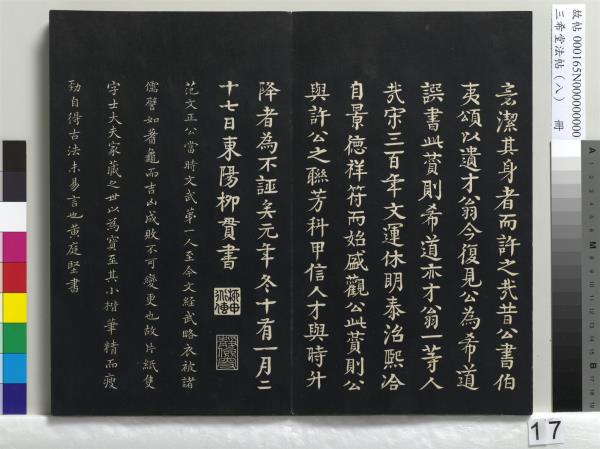 亮潔其身者而許之哉昔公書伯
夷頌以遺才翁今復見公為希道
誤書此贊則希道亦才翁一等人
哉宋三百年文運休明泰治熙洽
自景德祥符而始盛觀公此贊則公
與許公之聯芳科甲信人才與時升
降者為不誣矣元年冬十有一月二
十七日東陽柳貫書
范文正公當時文武第一人至今文經武略衣被諸
儒譬如蓍龜而吉凶成敗不可變更也故片紙隻
字士大夫家藏之世以為寶至其小楷筆精而瘦
勁自得古法未易言也黃庭堅書
故帖 000165N000000000
三希堂法帖（八） 冊
17